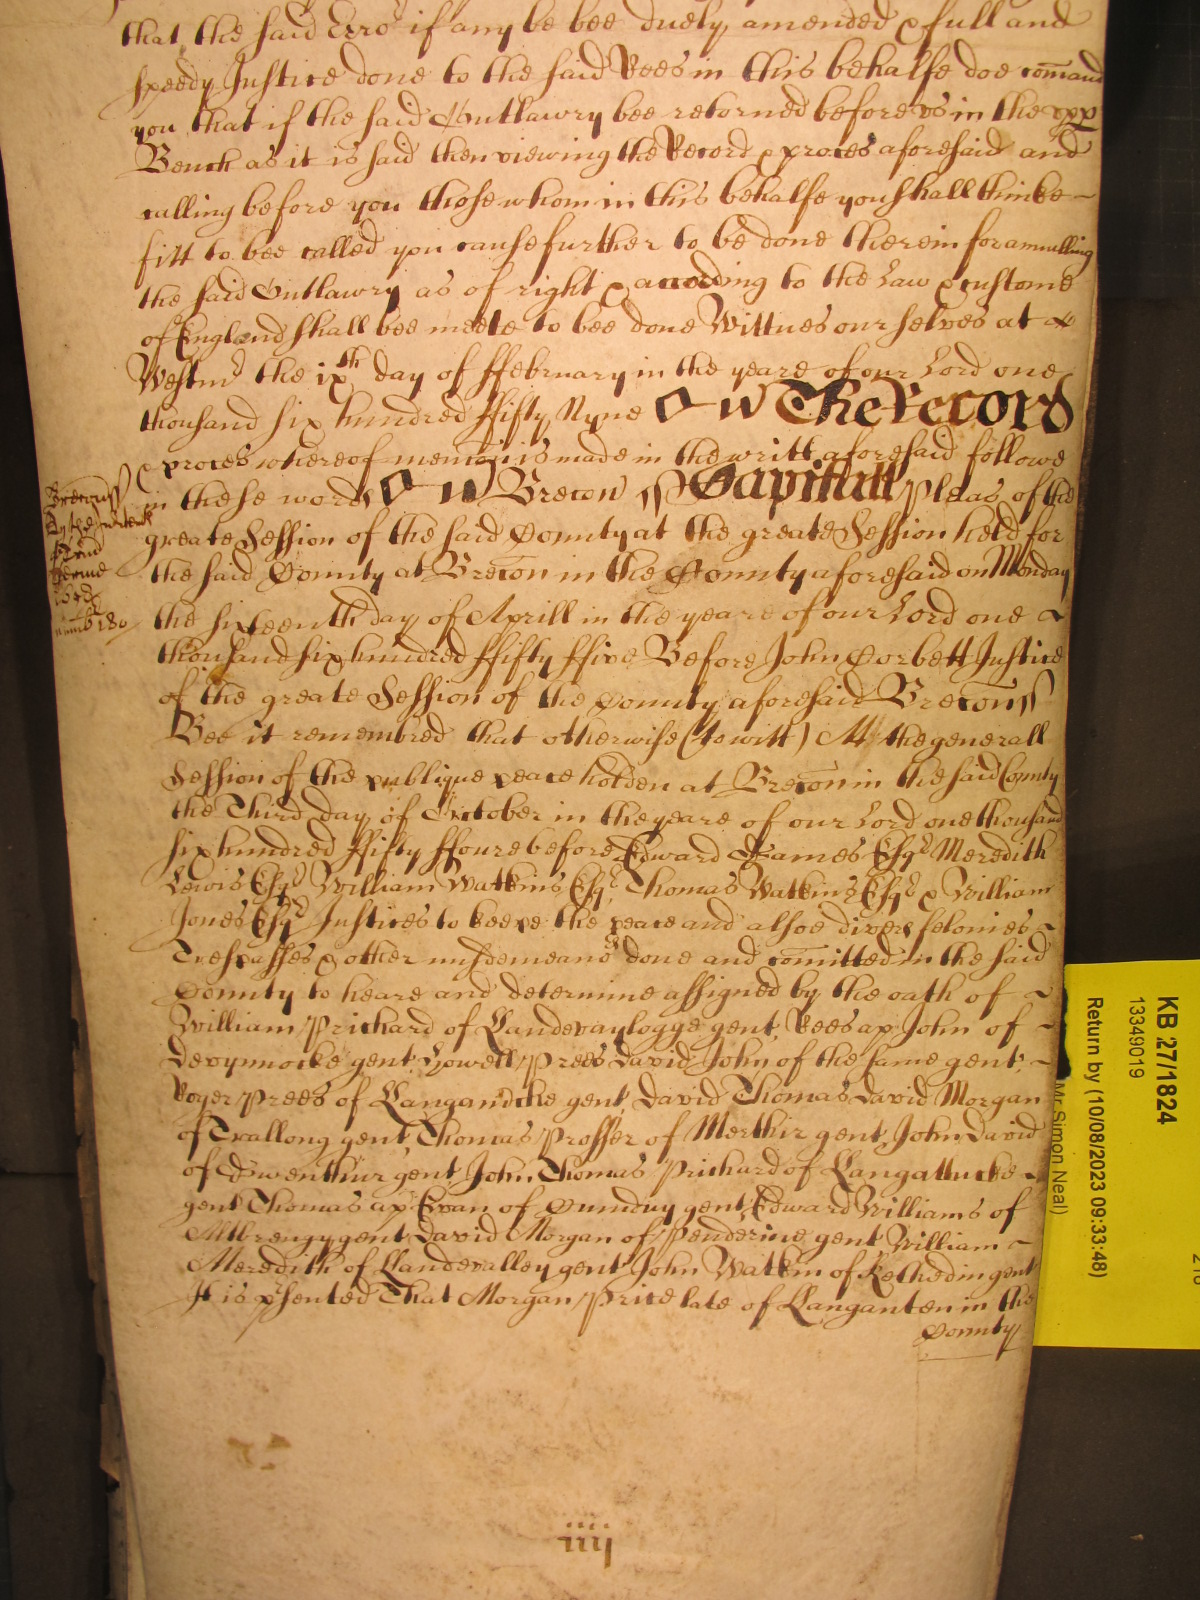 that the said Erro^r if any be bee duely amended & full and
speedy Justice done to the said Rees in this behalfe doe comand
you that if the said Outlawry bee retorned before vs in the vpp
Bench as it is said then viewing the Record & proces aforesaid and
calling before you those whom in this behalfe you shall thinke
fitt to bee called you cause further to be done therein for annulling
the said Outlawry as of right & according to the Law & custome
of England shall bee meete to bee done Wittnes our selves at
Westm^r the ix^th day of ffebruary in the yeare of our Lord one
thousand six hundred ffifty Nyne The Record
& proces whereof mencon is made in the writt aforesaid followe
in these words Brecon ss Capitall Pleas of the
greate Session of the said County at the greate Session held for
the said County at Brecon in the County aforesaid on Monday
the sixteenth day of Aprill in the yeare of our Lord one
thousand six hundred ffifty ffive Before John Corbett Justice
of the greate Session of the County aforesaid Brecon ss
Bee it remembred that otherwise (to witt) Att the generall
Session of the publique peace holden at Brecon in the said County
the Third day of October in the yeare of our Lord one thousand
six hundred ffifty ffoure before Edward Games Esq^r Meredith
Lewis Esq^r William Watkins Esq^r Thomas Watkins Esq^r & William
Jones Esq^r Justices to keepe the peace and alsoe divers felonies
Trespasses & other misdemeano^rs done and comitted in the said
County to heare and determine assigned by the oath of
William Prichard of Landevaylogge gent Rees ap John of
Devynnocke gent Howell Prees David John of the same gent
Roger Prees of Langanicke gent David Thomas David Morgan
of Trallong gent Thomas Prosser of Merthir gent John David
of gent John Thomas Prichard of Langattucke
gent Thomas ap Evan of gent Edward Williams of
gent David Morgan of Penderine gent William
Meredith of Landevalley gent John Watkin of Kethedin gent
It is p^rsented That Morgan Price late of Langanten in the
County
Brecon ss
iiij
KB 27/1824
13349019
Return by (10/08/2023 09:33:48)
Mr Simon Neal)